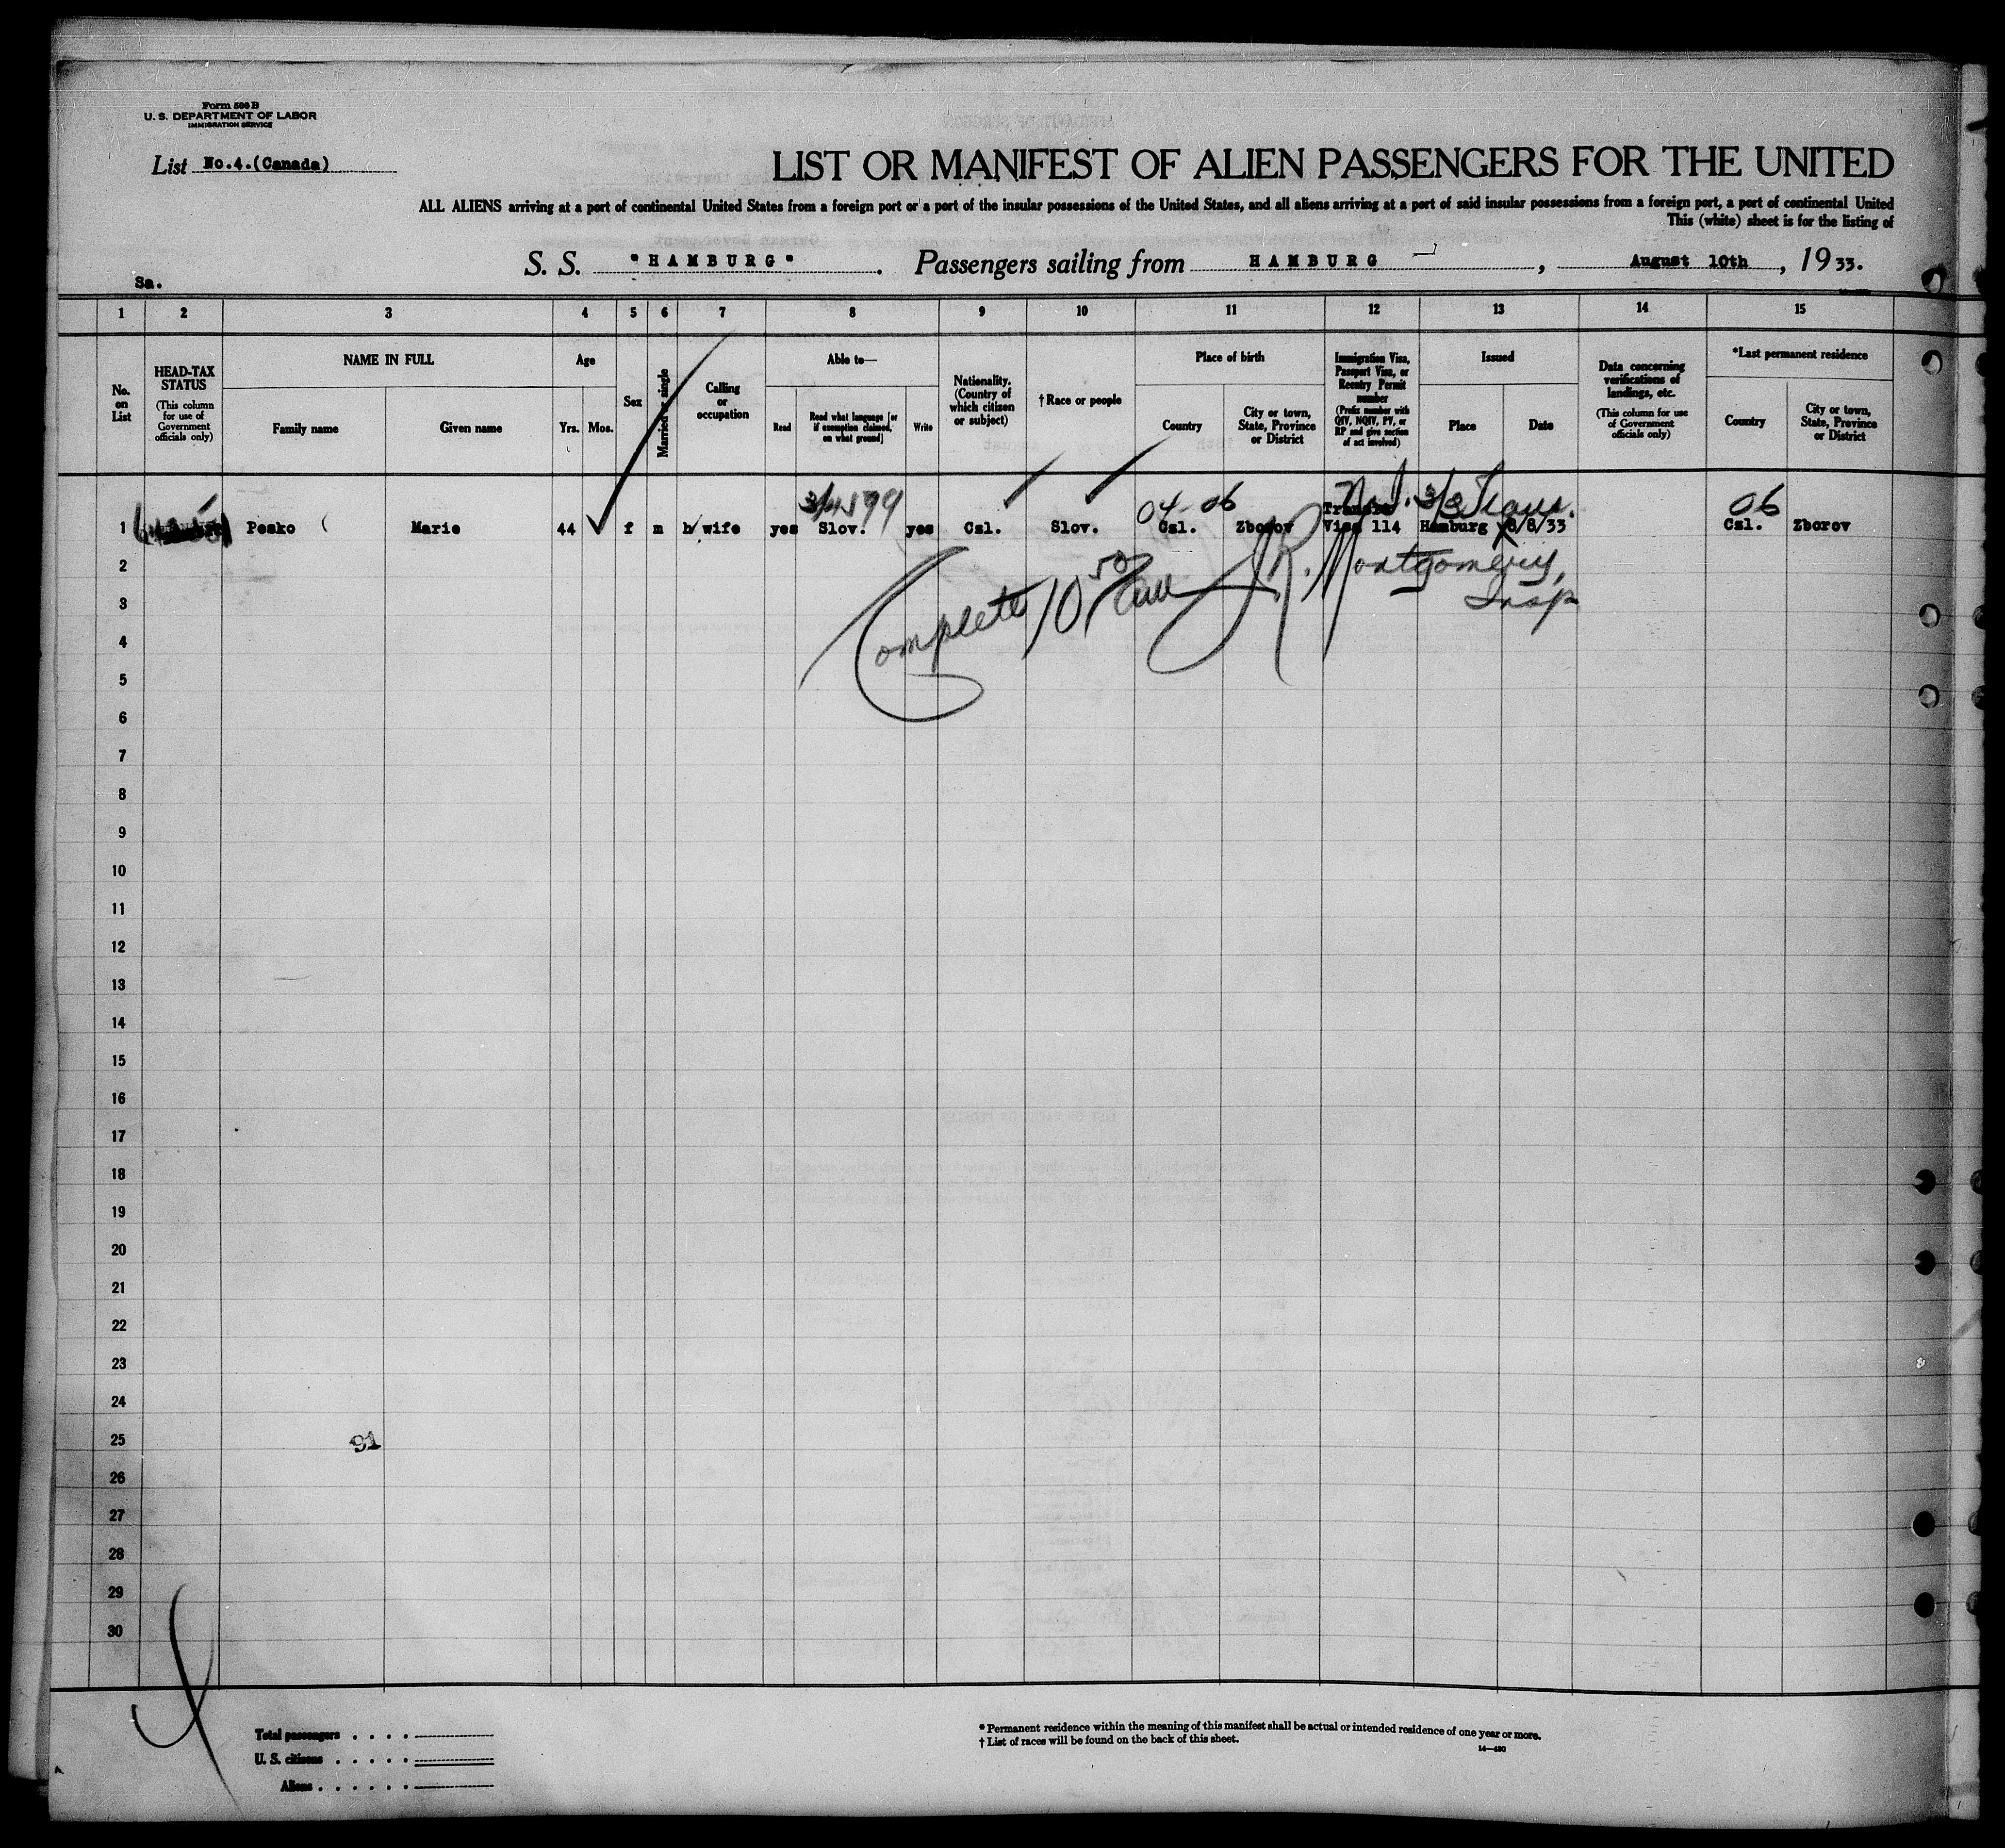 Form 500 B
U. S. DEPARTMENT OF LABOR
IMMIGRATION SERVICE
List No.4.(Canada)
LIST OR MANIFEST OF ALIEN PASSENGERS FOR THE UNITED
ALL ALIENS arriving at a port of continental United States from a foreign port or a port of the insular possessions of the United States, and all aliens arriving at a port of said insular possessions from a foreign port, a port of continental United
This (white) sheet is for the listing of
S. S. "HAMBURG". Passengers sailing from HAMBURG, August 10th, 1933.
Sa.
1 2 3 4 5 6 7 8 9 10 11 12 13 14 15
No. on List
HEAD-TAX STATUS
(This column for use of Government officials only)
NAME IN FULL
Family name Given name
Age
Yrs. Mos.
Sex
Married or single
Calling or occupation
Able to—
Read
Read what language [or if exemption claimed, on what ground]
Write
Nationality. (Country of which citizen or subject)
†Race or people
Place of birth
Country
City or town, State, Province or District
Immigration Visa, Passport Visa, or Reentry Permit number
(Prefix number with QIV, NQIV, PV, or RP and give section of act involved)
Issued
Place Date
Data concerning verifications of landings, etc.
(This column for use of Government officials only)
*Last permanent residence
Country
City or town, State, Province or District
04-06 3/3 Trans. 06
Transit
1 Pesko Marie 44 f m h/wife yes Slov. yes Csl. Slov. Csl. Zborov Visa 114 Hamburg 8/8/33 Csl. Zborov
Complete 10 50 am J.R. Montgomery,
Insp
2
3
4
5
6
7
8
9
10
11
12
13
14
15
16
17
18
19
20
21
22
23
24
25
91
26
27
28
29
30
Total passengers
U. S. citizens
Aliens
* Permanent residence within the meaning of this manifest shall be actual or intended residence of one year or more.
† List of races will be found on the back of this sheet.
14—430